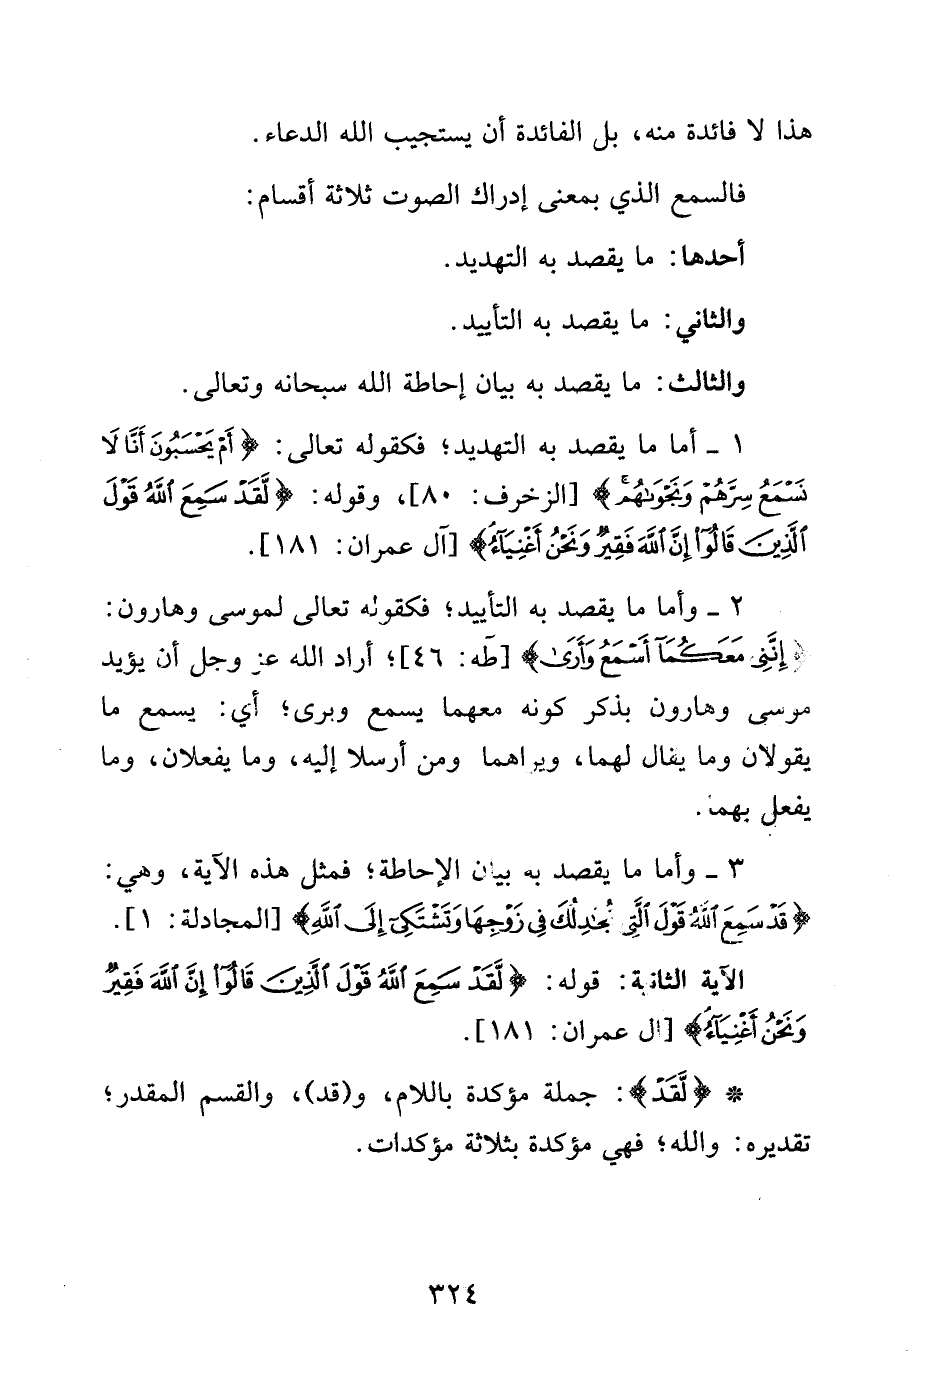 هذا لا فائدة منه، بل الفائدة أن يستجيب الله الدعاء.
فالسمع الذي بمعنى إدراك الصوت ثلاثة أقسام:
أحدها: ما يقصد به التهديد.
والثاني: ما يقصد به التأييد.
والثالث: ما يقصد به بيان إحاطة الله سبحانه وتعالى.
١ ـ أما ما يقصد به التهديد؛ فكقوله تعالى: ﴿أَمْ يَحْسَبُونَ أَنَّا لَا
نَسْمَعُ سِرَّهُمْ وَنَجْوَىٰهُمۚ﴾ [الزخرف: ٨٠]، وقوله: ﴿لَّقَدْ سَمِعَ ٱللَّهُ قَوْلَ
ٱلَّذِينَ قَالُوٓا۟ إِنَّ ٱللَّهَ فَقِيرٌ وَنَحْنُ أَغْنِيَآءُ﴾ [آل عمران: ١٨١].
٢ ـ وأما ما يقصد به التأييد؛ فكقوله تعالى لموسى وهارون:
﴿إِنَّنِى مَعَكُمَآ أَسْمَعُ وَأَرَىٰ﴾ [طٰه: ٤٦]؛ أراد الله عز وجل أن يؤيد
موسى وهارون بذكر كونه معهما يسمع ويرى؛ أي: يسمع ما
يقولان وما يقال لهما، ويراهما ومن أرسلا إليه، وما يفعلان، وما
يفعل بهما.
٣ ـ وأما ما يقصد به بيان الإحاطة؛ فمثل هذه الآية، وهي:
﴿قَدْ سَمِعَ ٱللَّهُ قَوْلَ ٱلَّتِى تُجَٰدِلُكَ فِى زَوْجِهَا وَتَشْتَكِىٓ إِلَى ٱللَّهِ﴾ [المجادلة: ١].
الآية الثانية: قوله: ﴿لَّقَدْ سَمِعَ ٱللَّهُ قَوْلَ ٱلَّذِينَ قَالُوٓا۟ إِنَّ ٱللَّهَ فَقِيرٌ
وَنَحْنُ أَغْنِيَآءُ﴾ [آل عمران: ١٨١].
* ﴿لَّقَدْ﴾: جملة مؤكدة باللام، و(قد)، والقسم المقدر؛
تقديره: والله؛ فهي مؤكدة بثلاثة مؤكدات.
٣٢٤